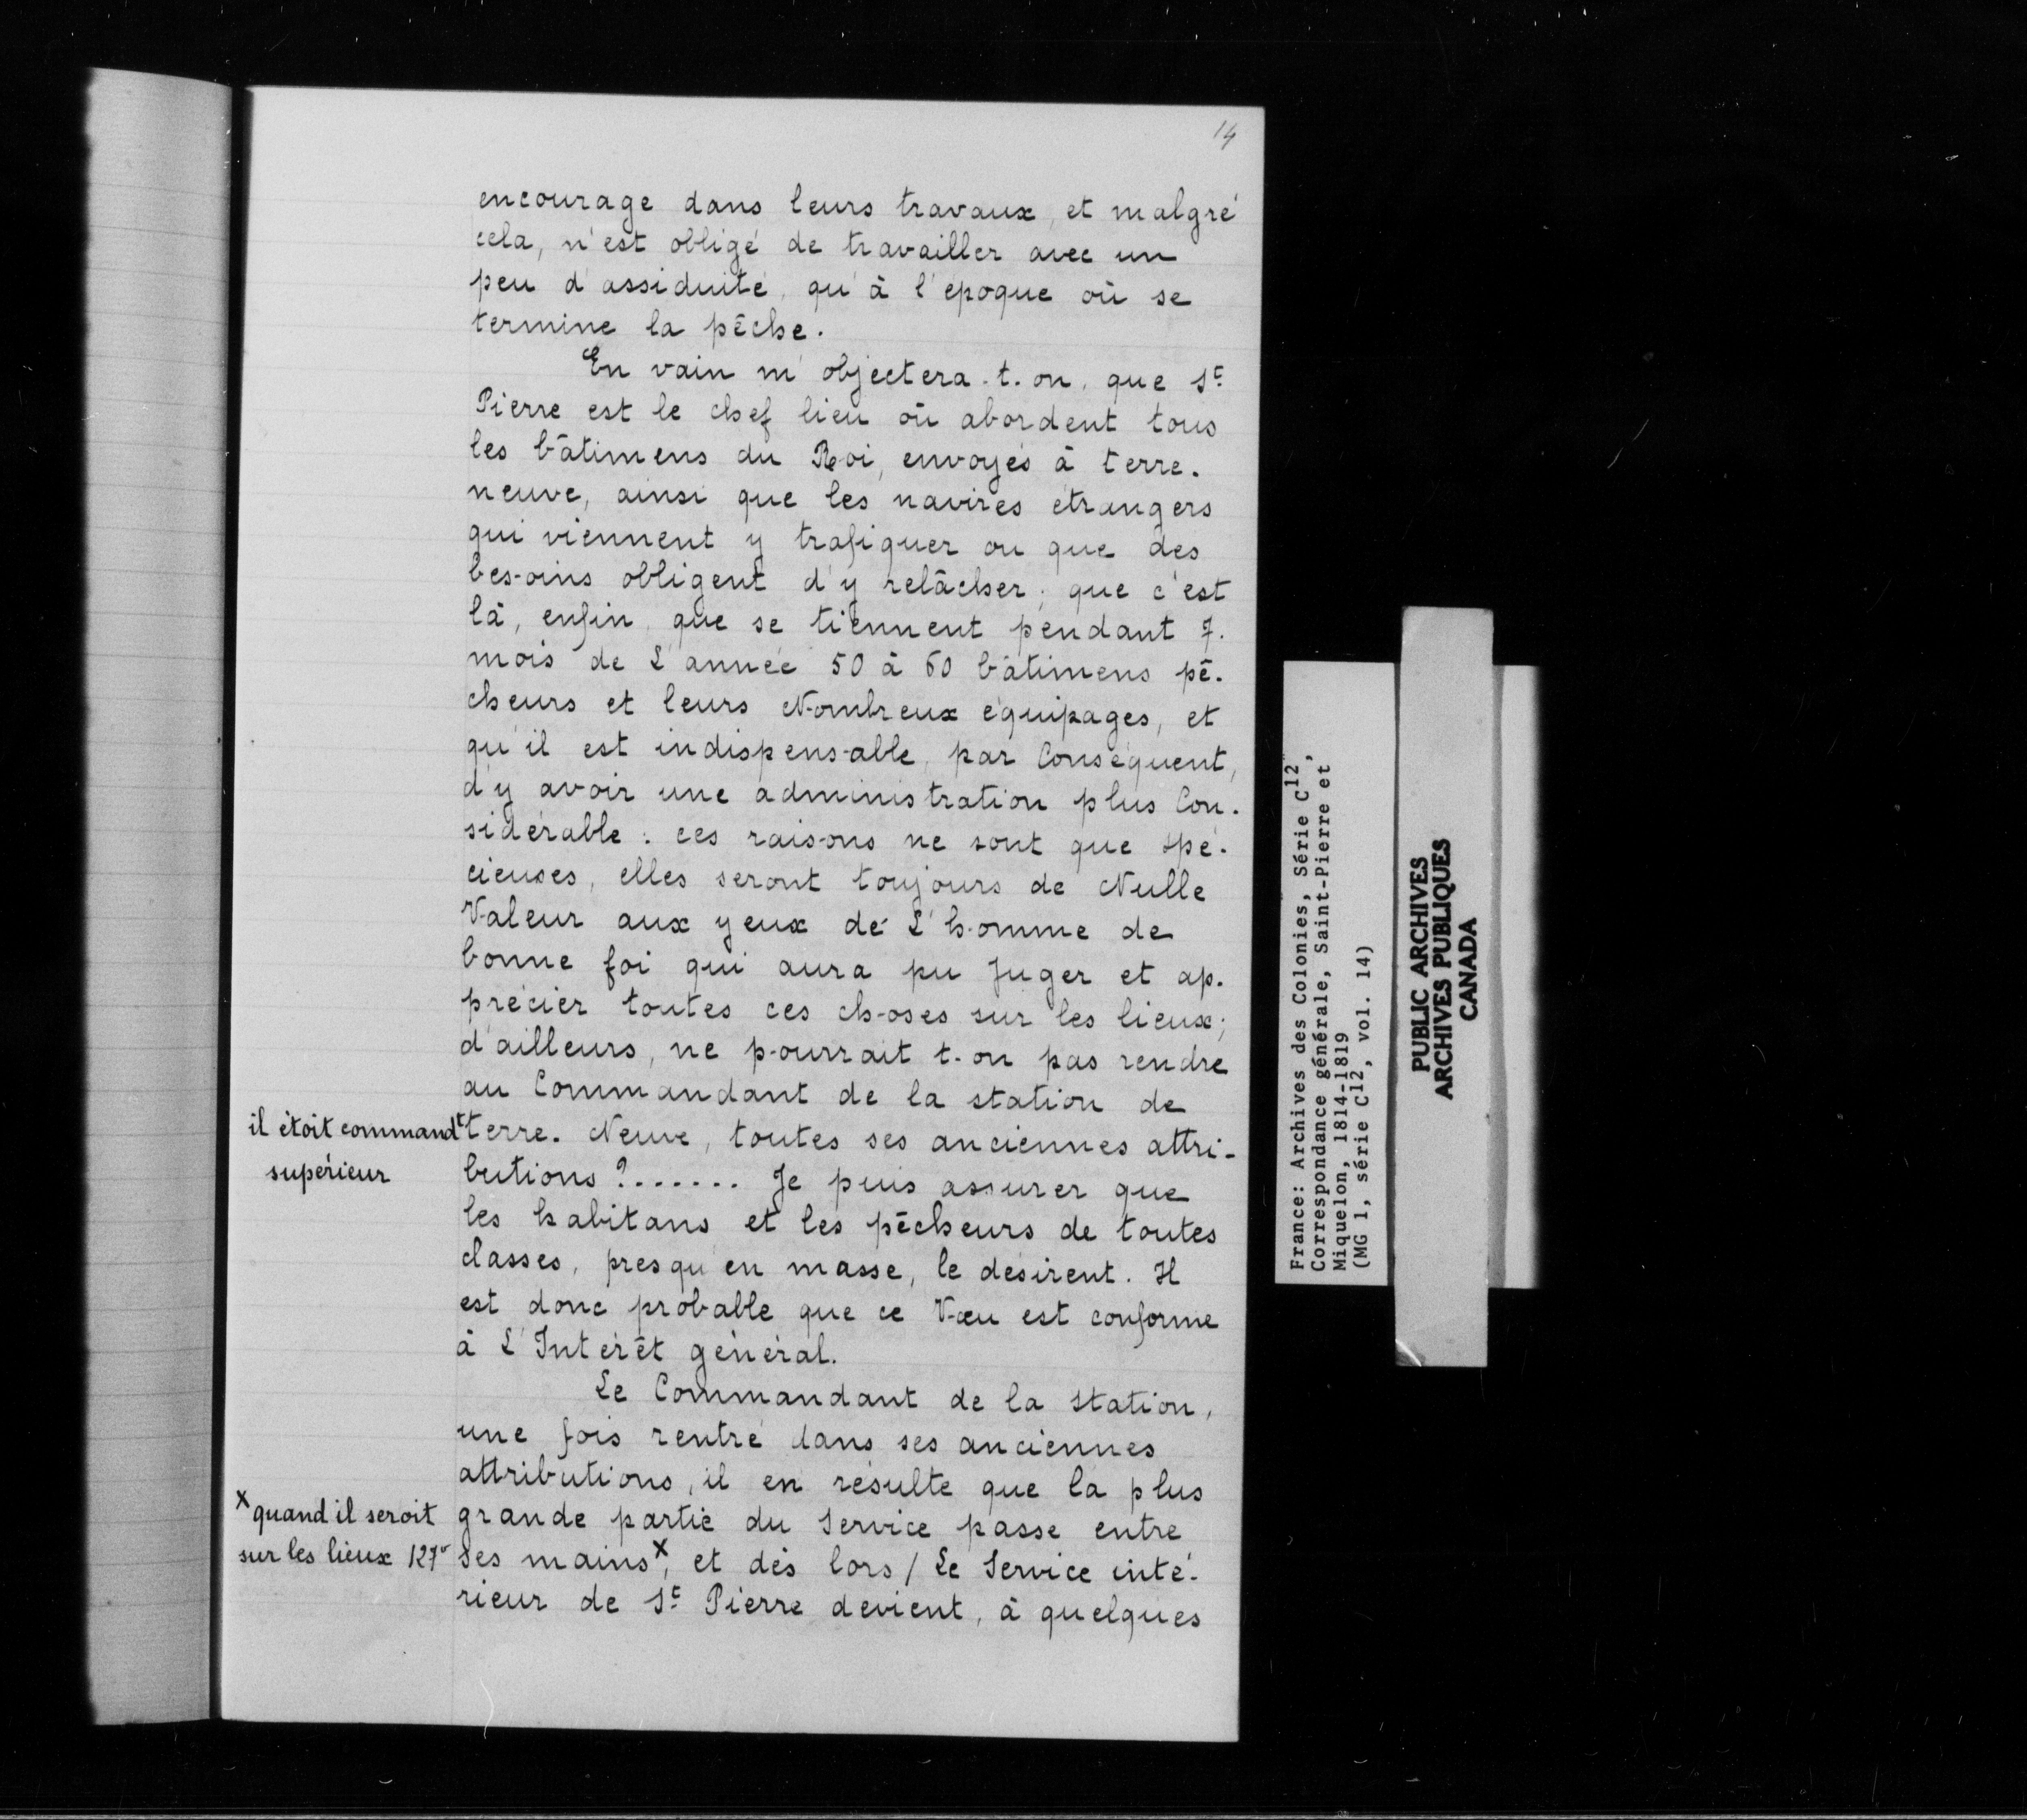 14
encourage dans leurs travaux, et malgré
cela, n'est obligé de travailler avec un
peu d'assiduité, qu'à l'époque où se
termine la pêche.
En vain m'objectera-t-on, que St
Pierre est le chef lieu où abordent tous
les bâtimens du Roi, envoyés à terre-
neuve, ainsi que les navires étrangers
qui viennent y trafiquer ou que des
besoins obligent d'y relâcher; que c'est
là, enfin, que se tiennent pendant 7.
mois de L'année 50 à 60 bâtimens pê-
cheurs et leurs Nombreux équipages, et
qu'il est indispensable, par Conséquent,
d'y avoir une administration plus Con-
sidérable : ces raisons ne sont que spé-
cieuses, elles seront toujours de Nulle
Valeur aux yeux de L'homme de
bonne foi qui aura pu Juger et ap-
précier toutes ces choses sur les lieux;
d'ailleurs, ne pourrait t-on pas rendre
au Commandant de la station de
il étoit commandt
supérieur
terre-Neuve, toutes ses anciennes attri-
butions ?....... Je puis assurer que
les habitans et les pêcheurs de toutes
classes, presqu'en masse, le désirent. Il
est donc probable que ce Vœu est conforme
à L'Intérêt général.
Le Commandant de la station,
une fois rentré dans ses anciennes
attributions, il en résulte que la plus
x quand il seroit
sur les lieux 127
grande partie du Service passe entre
ses mains x, et dès lors / Le Service inté-
rieur de St Pierre devient, à quelques
France: Archives des Colonies, Série C12,
Correspondance générale, Saint-Pierre et
Miquelon, 1814-1819
(MG 1, série C12, vol. 14)
PUBLIC ARCHIVES
ARCHIVES PUBLIQUES
CANADA